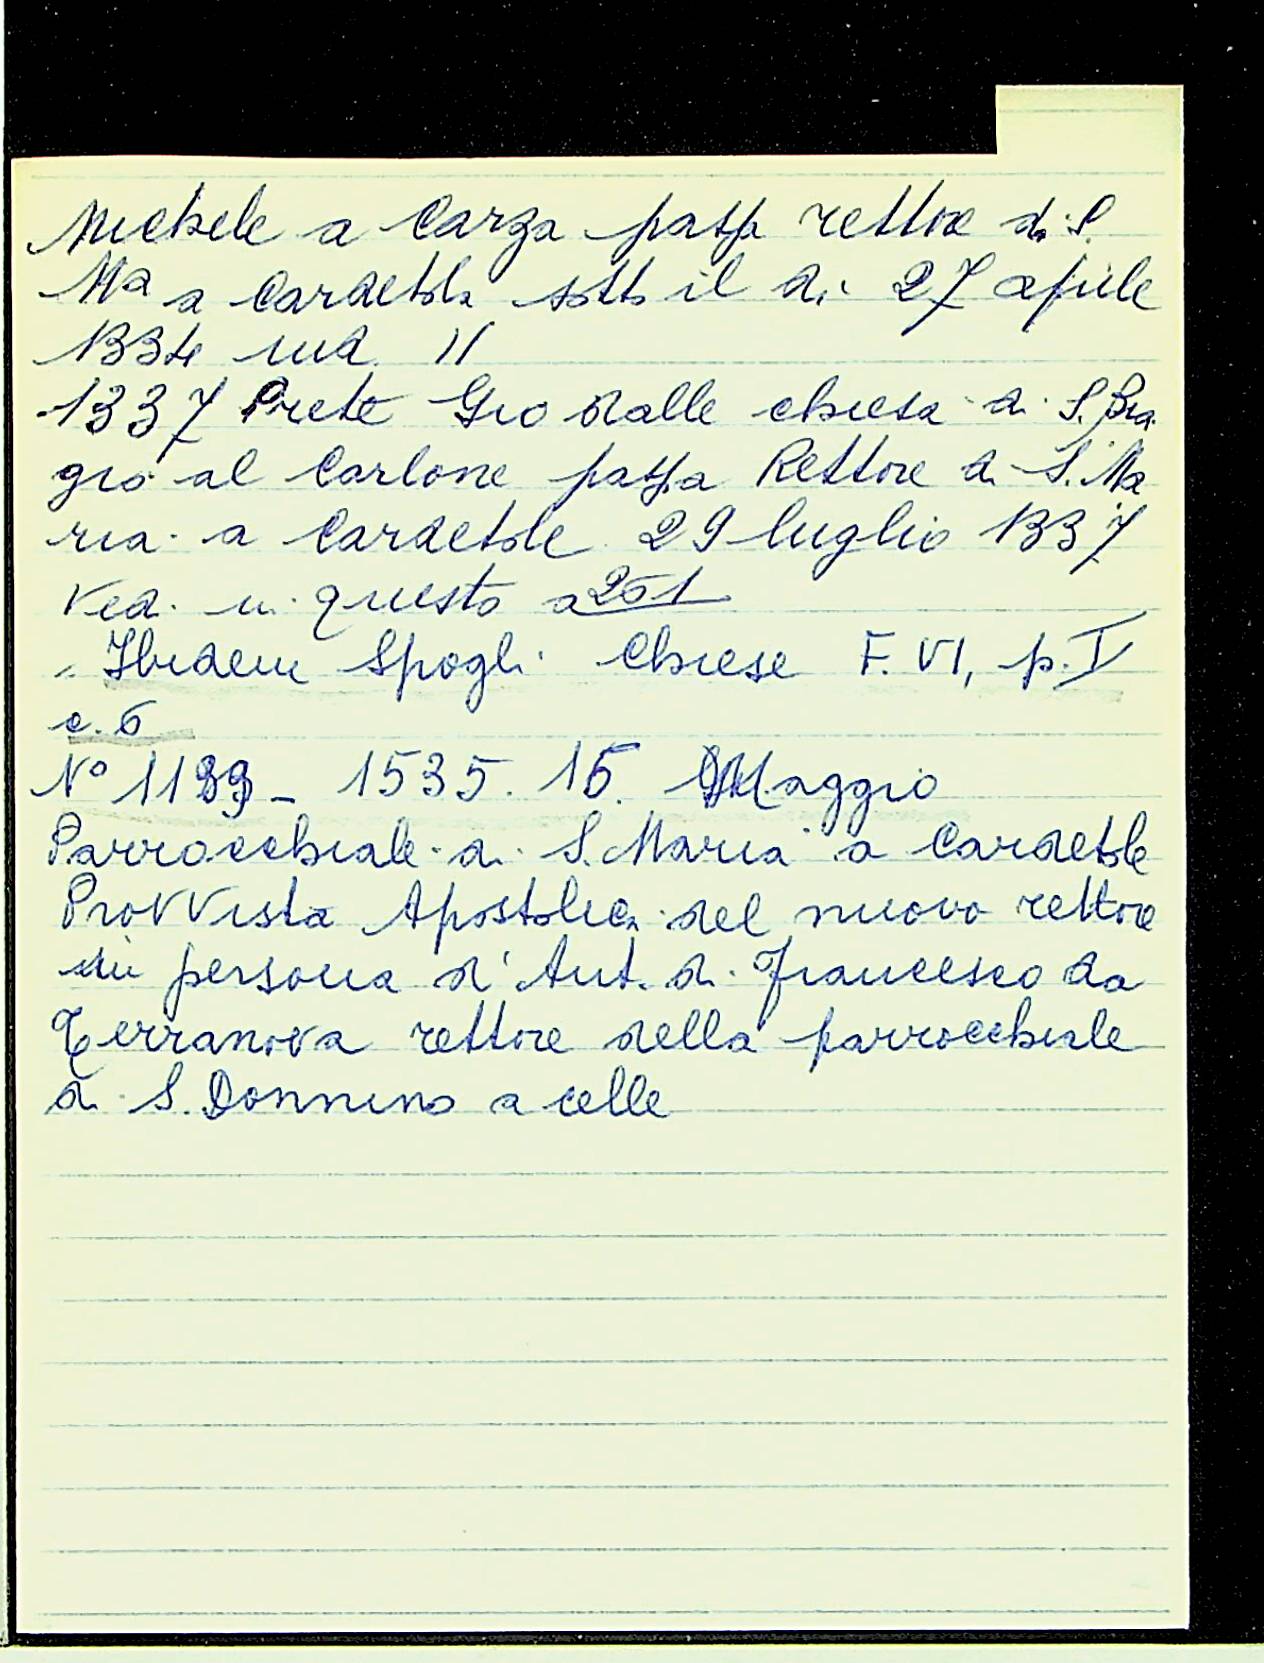 Michele a Carza passa rettore di S.
Ma a Cardetole sotto il di 27 aprile
1334 ind. II
1337 Prete Gio dalle chiesa di S. Bia
gio al Carlone passa Rettore di S. Ma
ria a Cardetole 29 luglio 1337
Ved. in questo a 261
Ibidem Spogli Chiese F. VI, p. I
c. 6
N° 1199 - 1535. 15. Maggio
Parrocchiale di S. Maria a Cardetole
Provvista Apostolica del nuovo rettore
in persona d'Ant. di Francesco da
Terranova rettore della parrocchiale
di S. Donnino a celle